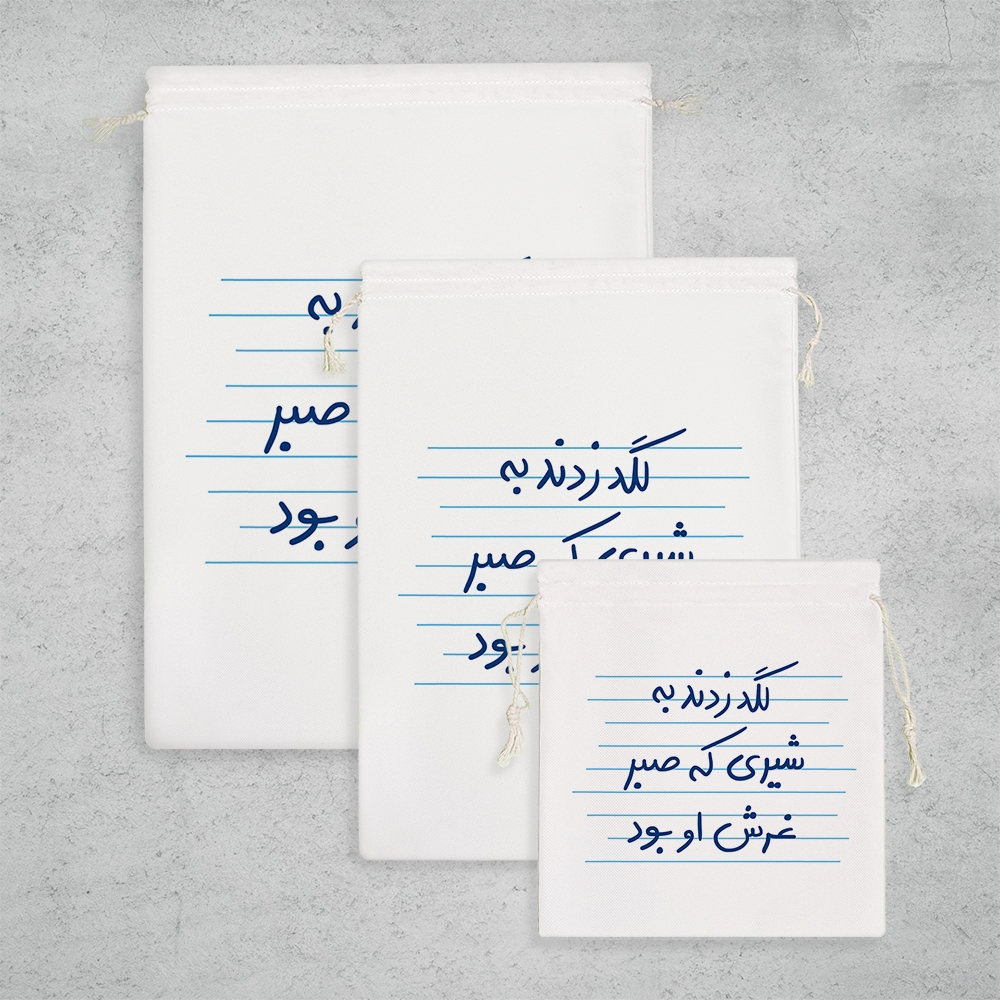 به
صبر
بود
لگد زدند به
شیری که صبر
بود
لگد زدند به
شیری که صبر
غرش او بود